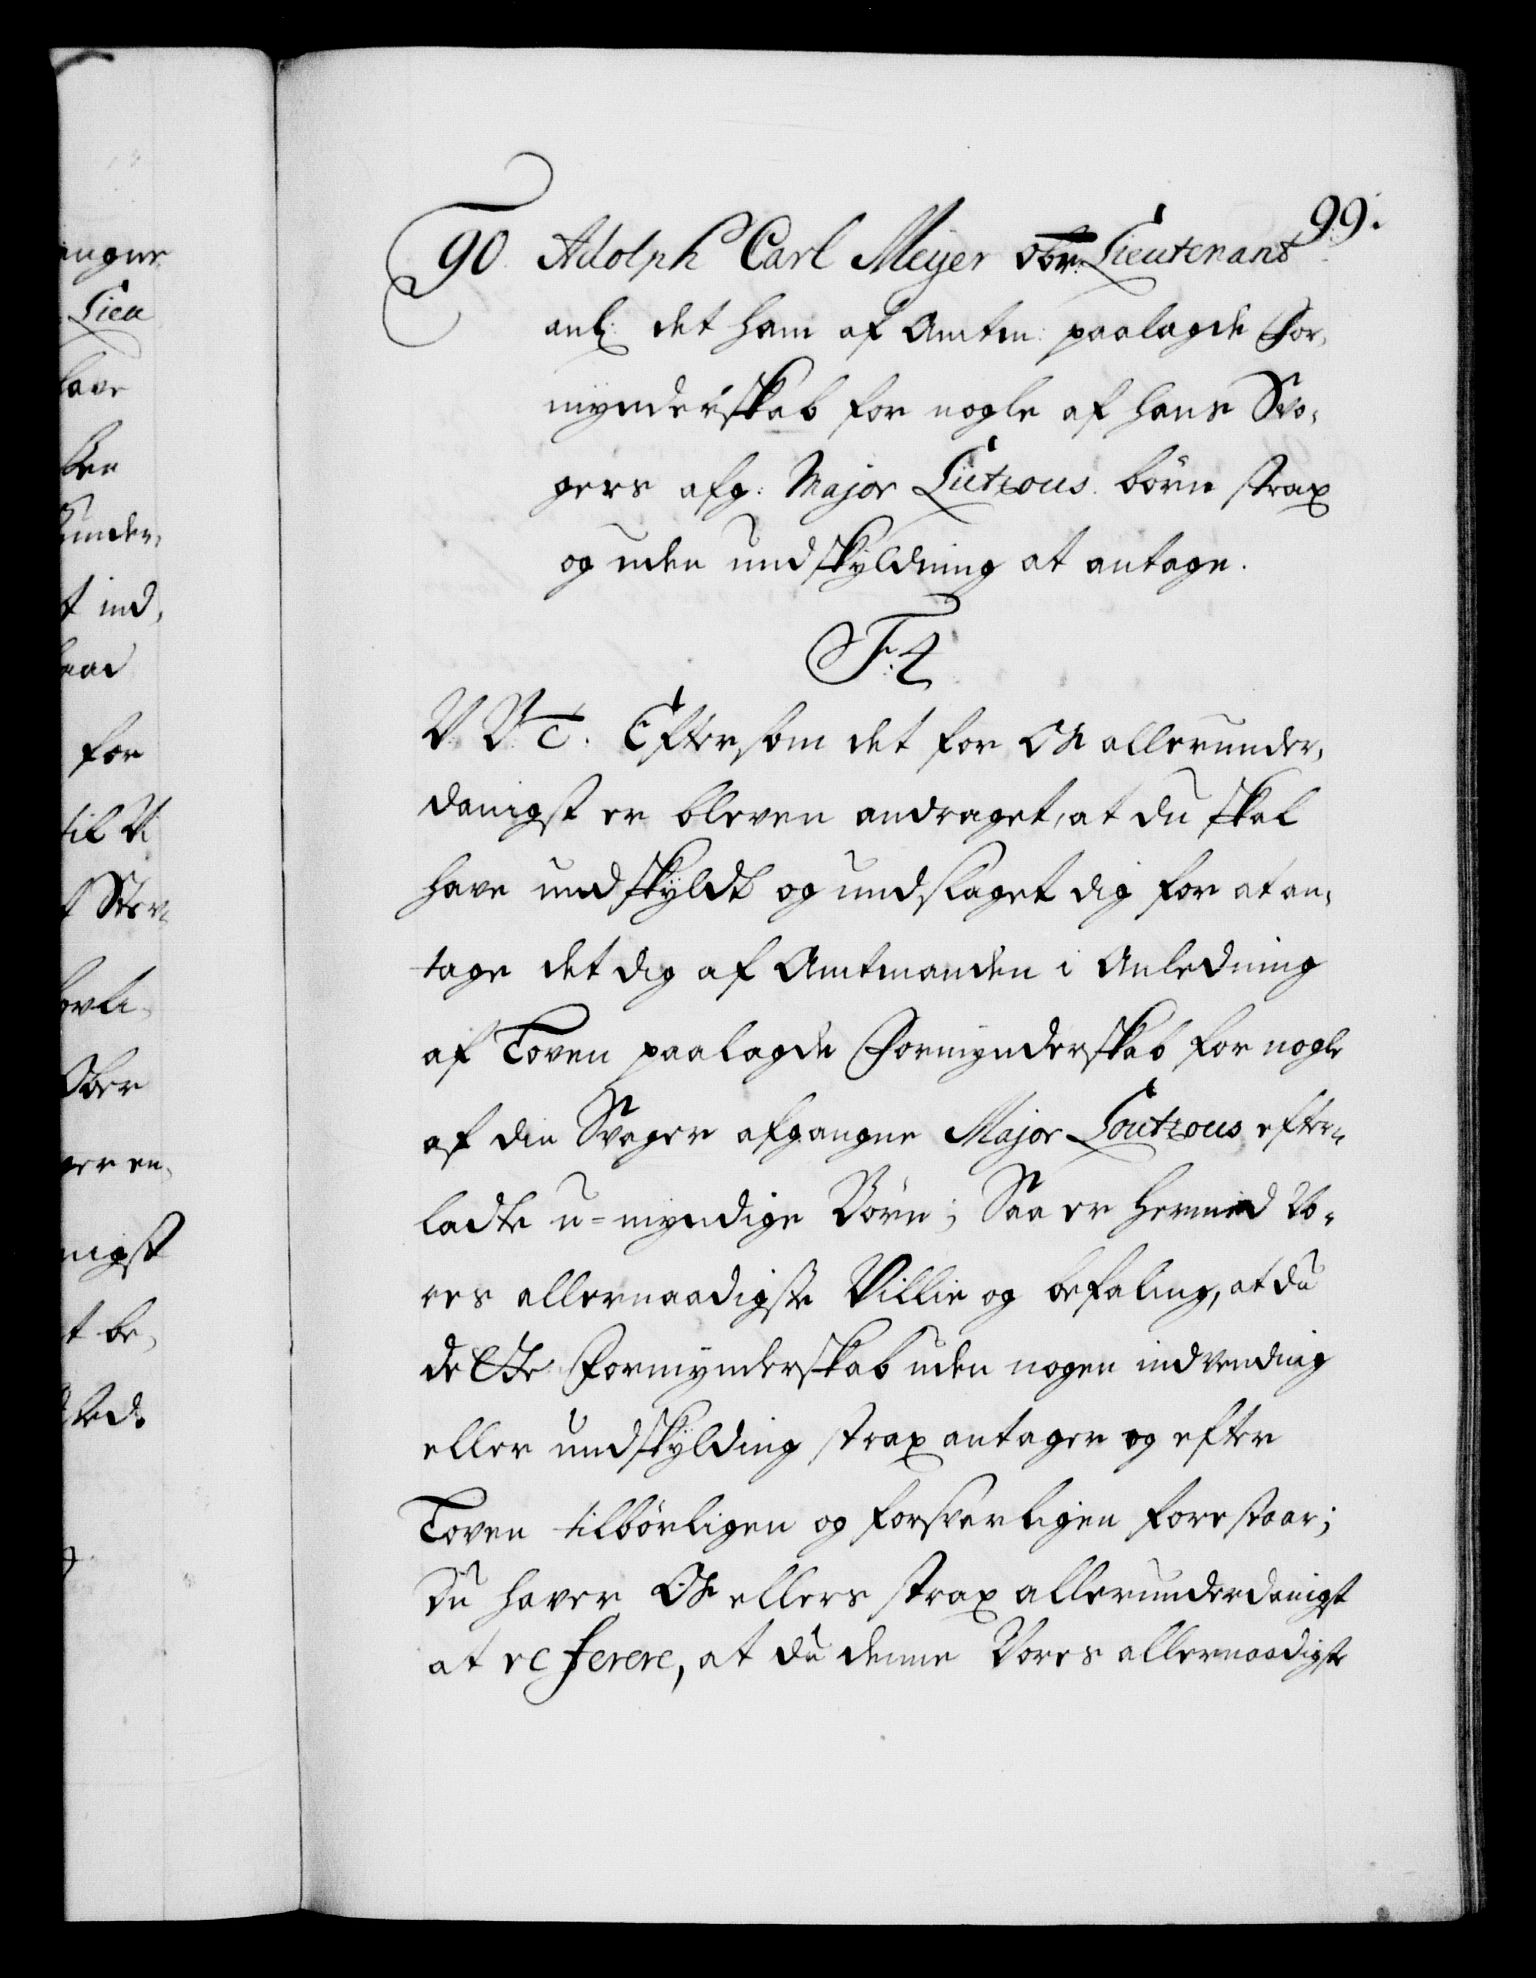 99.
90. Adolph Carl Meyer Obr: Lieutenant
anl: det ham af Amtm: paalagde For,
mynderskab for nogle af hans Svo,
gers afg: Major Lützous børn strax
og uden undskyldning at antage.
F: 4
V. V. T. Eftersom det for Os allerunder,
danigst er bleven andraget, at du skal
have undskyldt og undslaget dig for at an,
tage det dig af Amtmanden i Anledning
af Loven paalagde Formynderskab for nogle
af din Svager afgangne Major Loutzous efter,
ladte u=myndige Børn; Saa er hermed Vo,
res allernaadigste Villie og befaling, at du
dette Formynderskab uden nogen indvending
eller undskylding strax antager og efter
Loven tilbørligen og forsvarligen forestaar;
Du haver Os ellers strax allerunderdanigst
at referere, at du denne Vores allernaadigste
angne
Lieu
have
ben
under,
t ind,
for
til Vi
Ober
ger en,
nigst
t be,